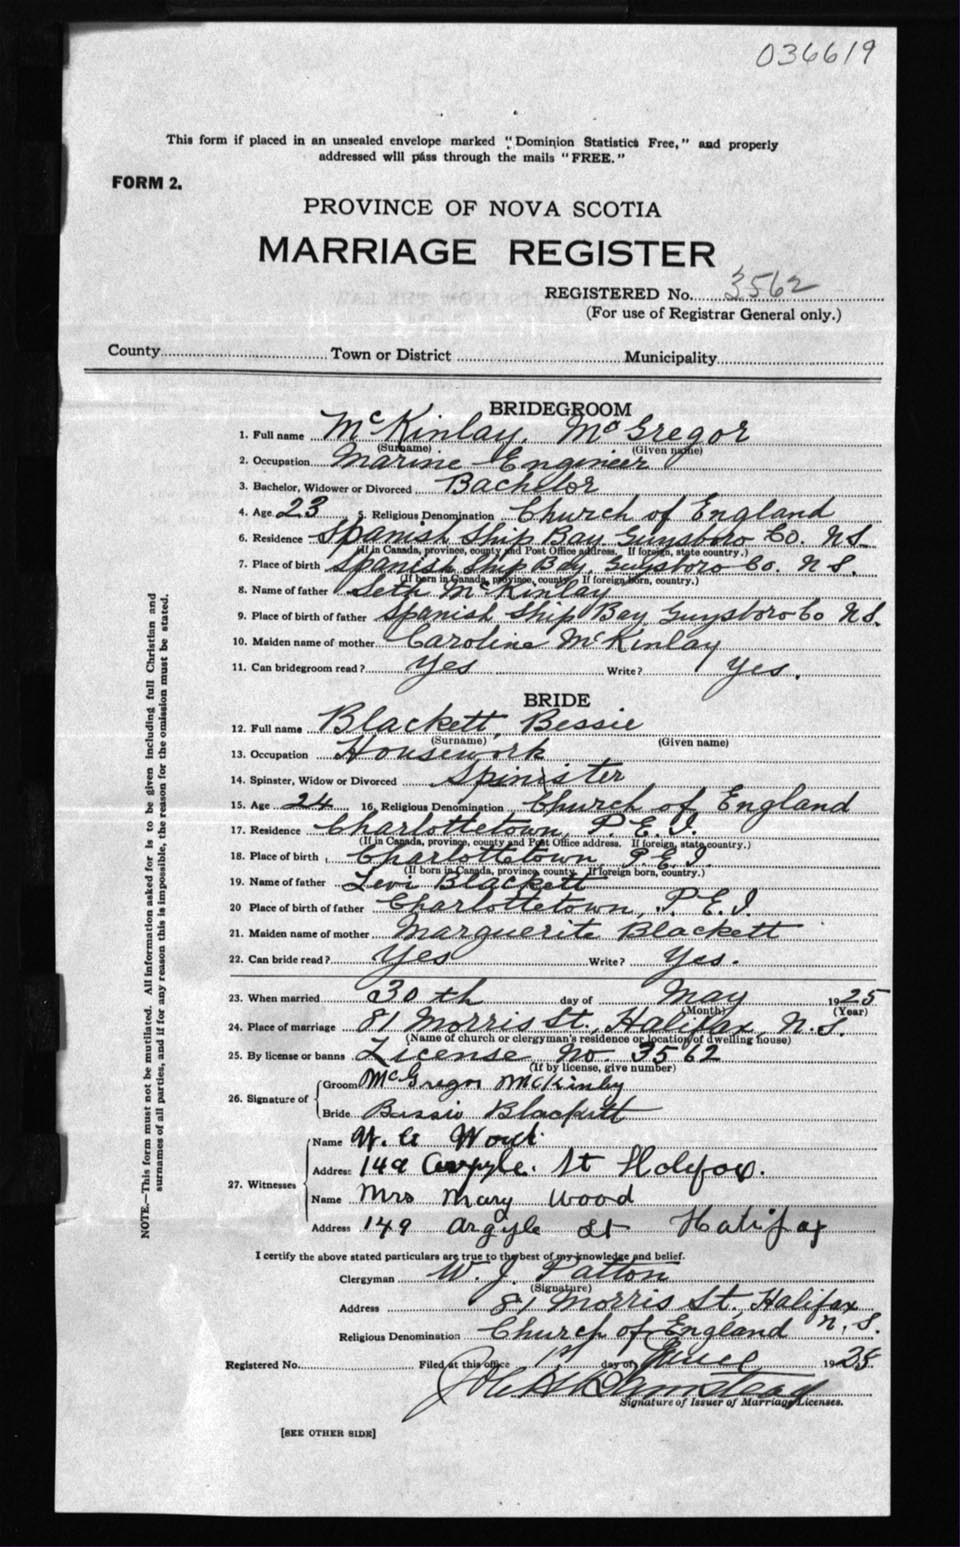 036619
This form if placed in an unsealed envelope marked "Dominion Statistics Free," and properly
addressed will pass through the mails "FREE."
FORM 2.
PROVINCE OF NOVA SCOTIA
MARRIAGE REGISTER
REGISTERED No. 3562
(For use of Registrar General only.)
County Town or District Municipality
BRIDEGROOM
1. Full name McKinlay, McGregor
(Surname) (Given name)
2. Occupation Marine Engineer
3. Bachelor, Widower or Divorced Bachelor
4. Age 23 5. Religious Denomination Church of England
6. Residence Spanish Ship Bay Guysboro Co. N.S.
(If in Canada, province, county and Post Office address. If foreign, state country.)
7. Place of birth Spanish Ship Bay, Guysboro Co. N S.
(If born in Canada, province, county If foreign born, country.)
8. Name of father Seth McKinlay
9. Place of birth of father Spanish Ship Bay Guysboro Co N.S.
10. Maiden name of mother Caroline McKinlay
11. Can bridegroom read? Yes Write? Yes.
BRIDE
12. Full name Blackett, Bessie
(Surname) (Given name)
13. Occupation Housework
14. Spinster, Widow or Divorced Spinister
15. Age 24 16. Religious Denomination Church of England
17. Residence Charlottetown, P.E.I.
(If in Canada, province, county and Post Office address. If foreign, state country.)
18. Place of birth Charlottetown, P.E.I.
(If born in Canada, province, county If foreign born, country.)
19. Name of father Levi Blackett
20 Place of birth of father Charlottetown, P.E.I.
21. Maiden name of mother Marguerite Blackett
22. Can bride read? Yes Write? Yes.
23. When married 30th day of May 1925
(Month) (Year)
24. Place of marriage 81 Morris St., Halifax, N.S.
(Name of church or clergyman's residence or location of dwelling house)
25. By license or banns License No. 3562
(If by license, give number)
26. Signature of Groom McGregor McKinlay
Bride Bessie Blackett
27. Witnesses Name W. Wood
Address 149 Argyle. St Halifax.
Name Mrs Mary Wood
Address 149 Argyle St Halifax
I certify the above stated particulars are true to the best of my knowledge and belief.
Clergyman W. J. Patton
(Signature)
Address 81 Morris St., Halifax
N.S.
Religious Denomination Church of England
Registered No. Filed at this office 1st day of June 1925.
Signature of Issuer of Marriage Licenses.
[SEE OTHER SIDE]
NOTE.—This form must not be mutilated. All information asked for is to be given including full Christian and
surnames of all parties, and if for any reason this is impossible, the reason for the omission must be stated.